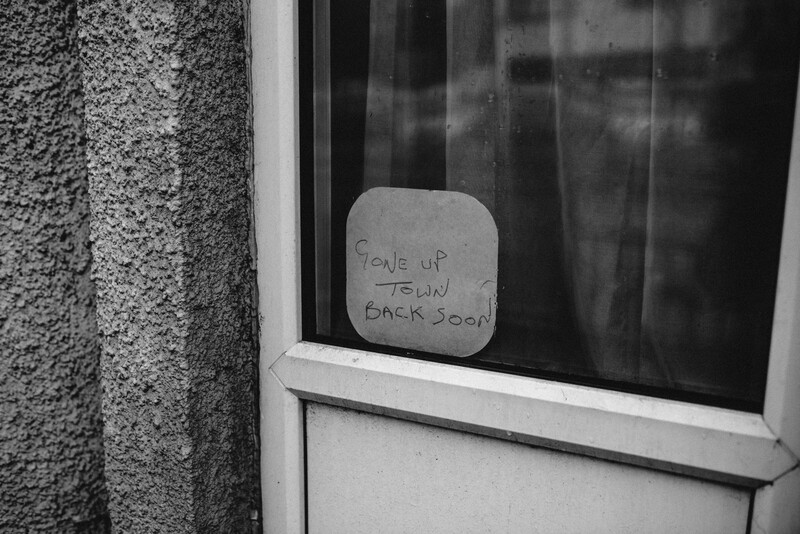 GONE UP
TOWN
BACK SOON